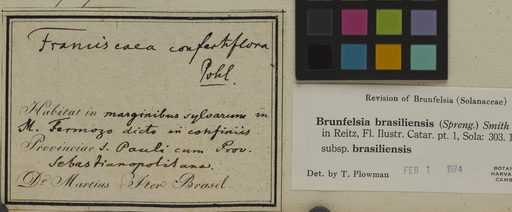 Franciscaea confertiflora
Pohl.
Habitat in marginibus sylvarum in
M. Formozo dicto in confiniis
Provinciae S. Pauli cum Prov.
Sebastianopolitana.
Dr Martius Iter Brasil.
Revision of Brunfelsia (Solanaceae)
Brunfelsia brasiliensis (Spreng.) Smith
in Reitz, Fl. Ilustr. Catar. pt. 1, Sola: 303. 1
subsp. brasiliensis
Det. by T. Plowman FEB 1 1974
BOTAN
HARVA
CAMB